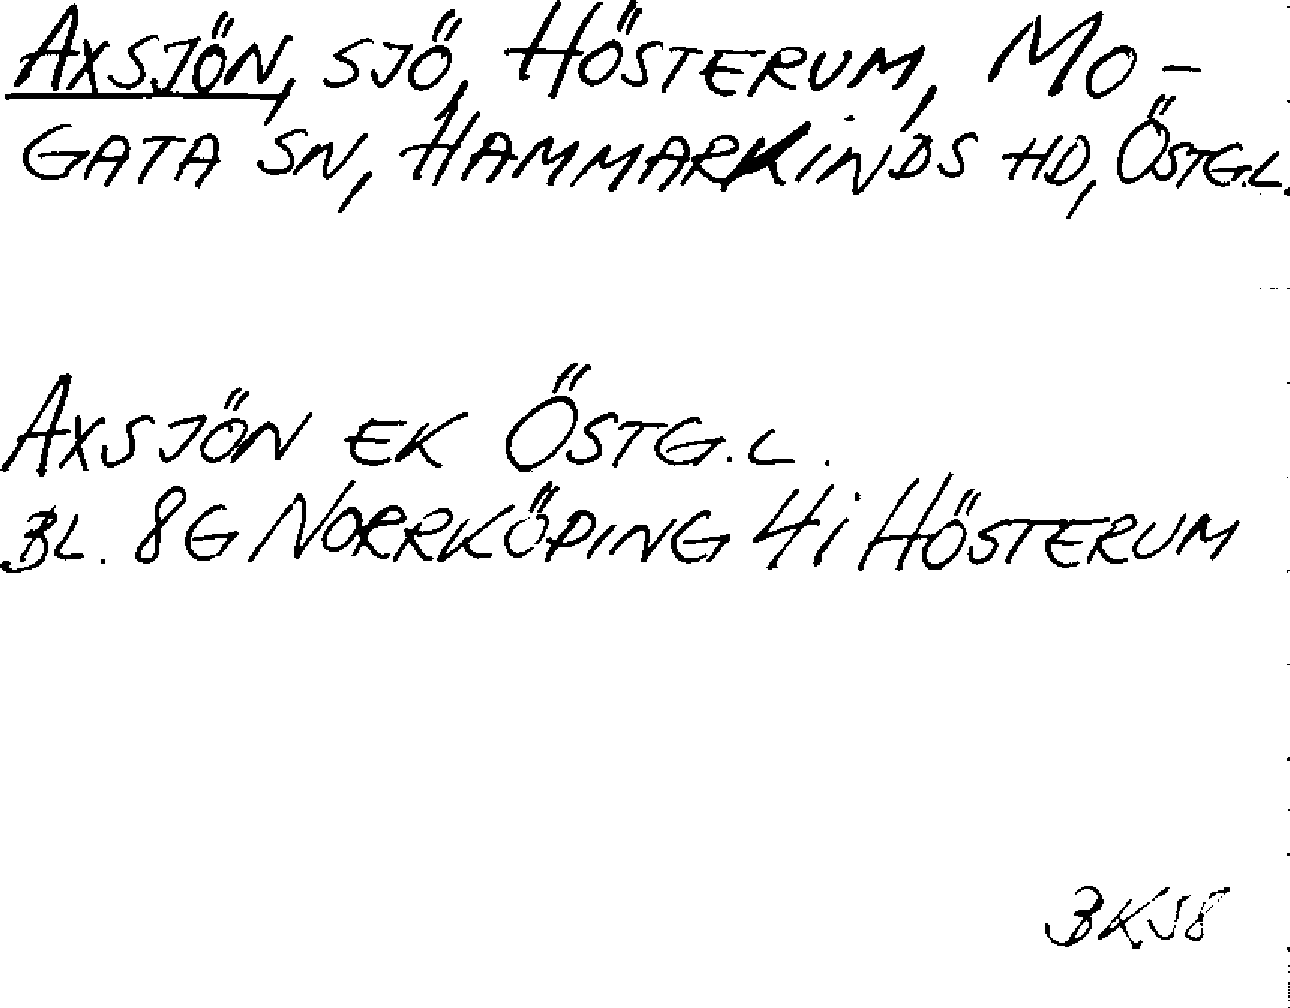 AXSJÖN, SJÖ, HÖSTERUM, MO-
GATA SN, HAMMARKINDS HD, ÖSTG.L.
AXSJÖN EK ÖSTG.L.
BL. 8G NORRKÖPING 4i HÖSTERUM
BKS8